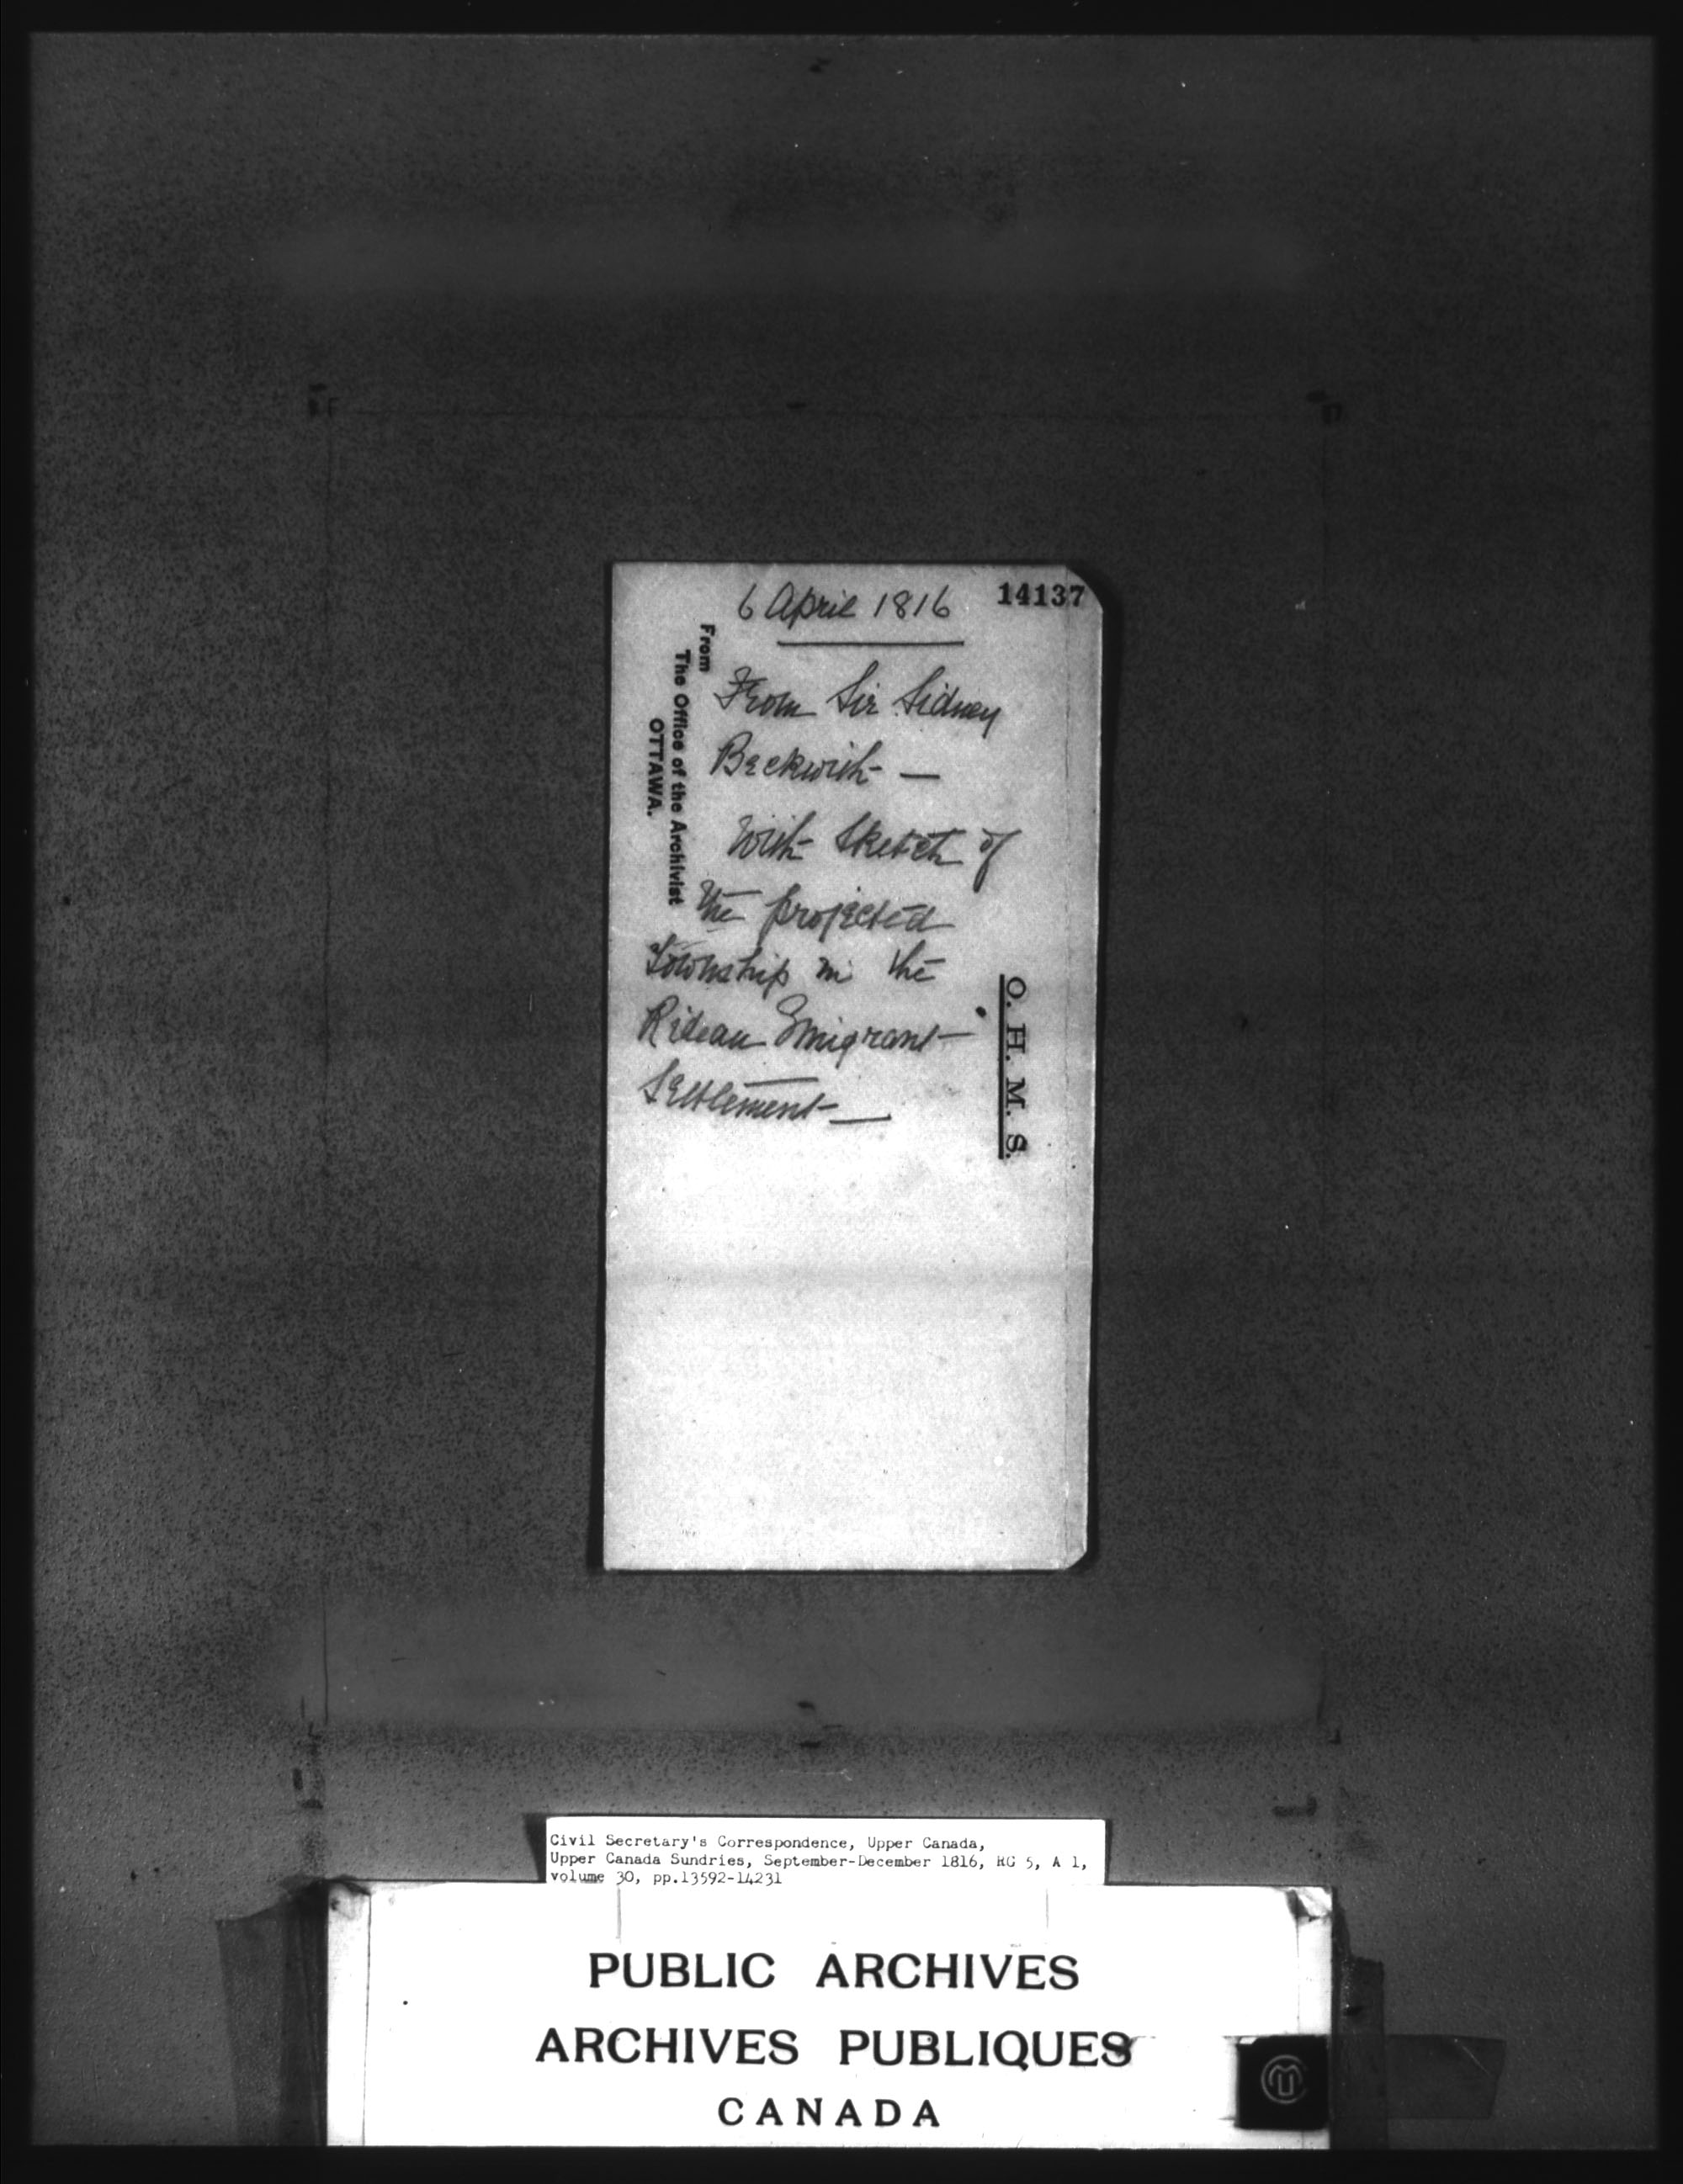 6 April 1816
14137
From
The Office of the Archivist
OTTAWA.
From Sir Sidney
Beckwith —
With Sketch of
the projected
Township in the
Rideau Emigrant
Settlement —
O. H. M. S.
Civil Secretary's Correspondence, Upper Canada,
Upper Canada Sundries, September-December 1816, RG 5, A 1,
volume 30, pp.13592-14231
PUBLIC ARCHIVES
ARCHIVES PUBLIQUES
CANADA